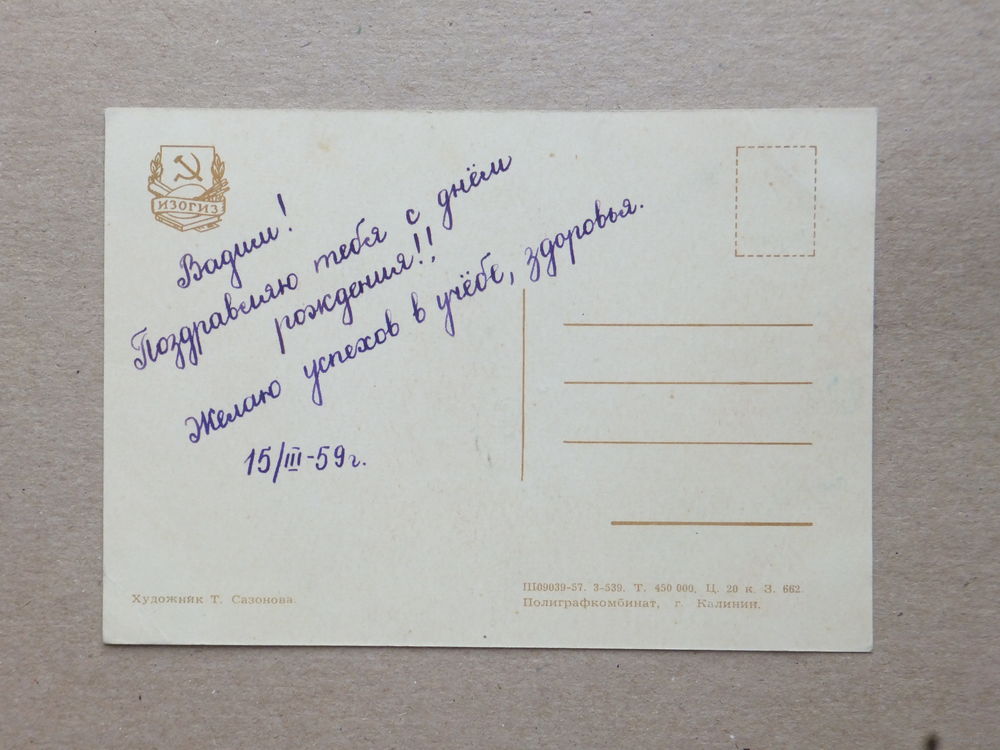 ИЗОГИЗ
Вадим!
Поздравляю тебя с днём
рождения!!
Желаю успехов в учёбе, здоровья.
15/III-59г.
Художник Т. Сазонова.
Ш09039-57. З-539. Т. 450 000. Ц. 20 к. З. 662
Полиграфкомбинат, г. Калинин.